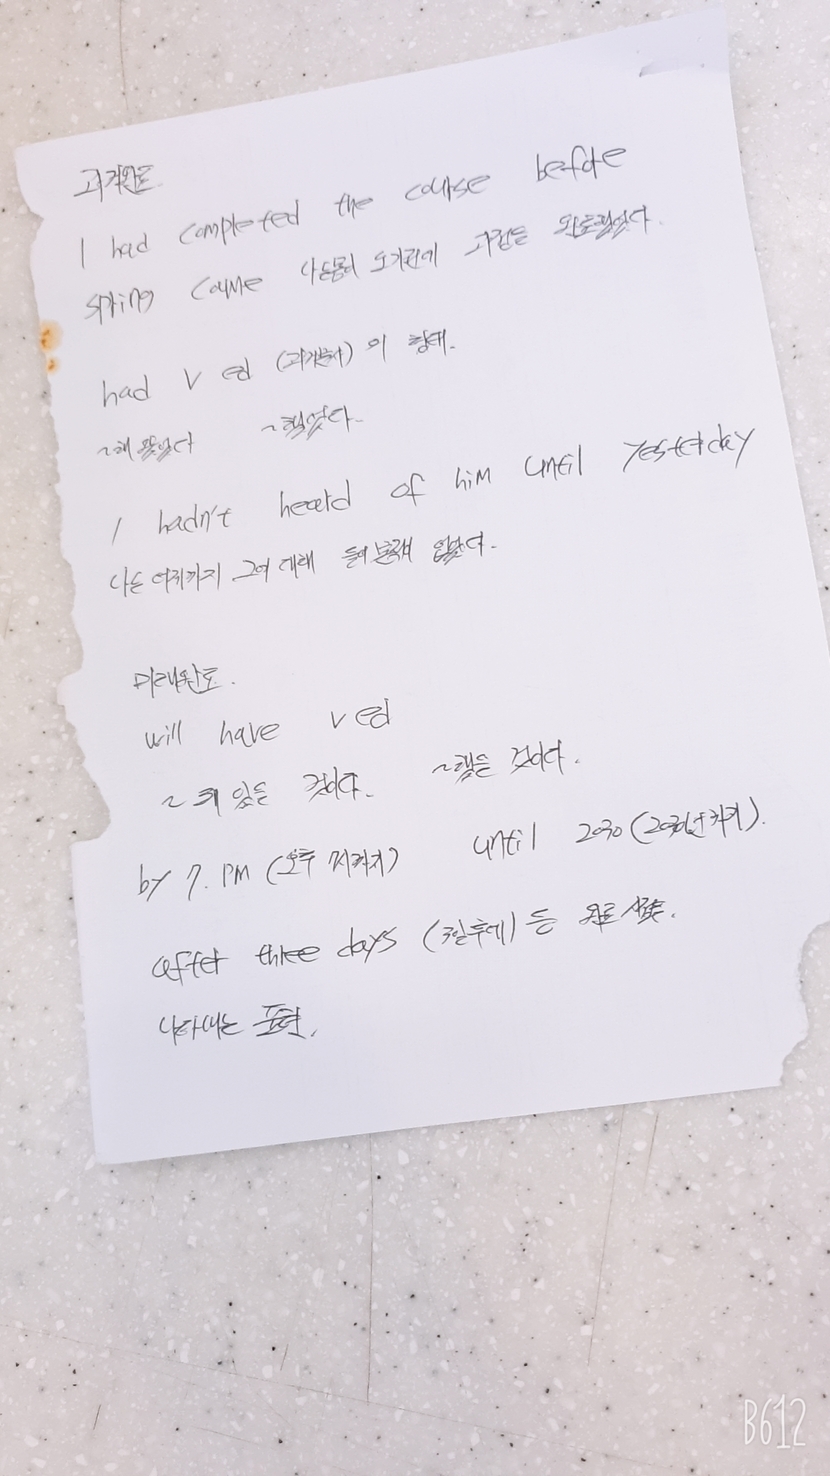 과거완료
I had completed the course before
spring came 나는 봄이 오기전에 과정을 완료했었다.
had V ed (과거분사) 의 형태.
~해 왔었다 ~했었다.
I hadn't heard of him until yesterday
나는 어제까지 그에 대해 들어 본적이 없었다.
미래완료.
will have v ed
~해 있을 것이다. ~했을 것이다.
by 7. PM (오후 7시까지) until 2030 (2030년까지).
after three days (3일후에) 등 완료
나타내는 표현.
B612